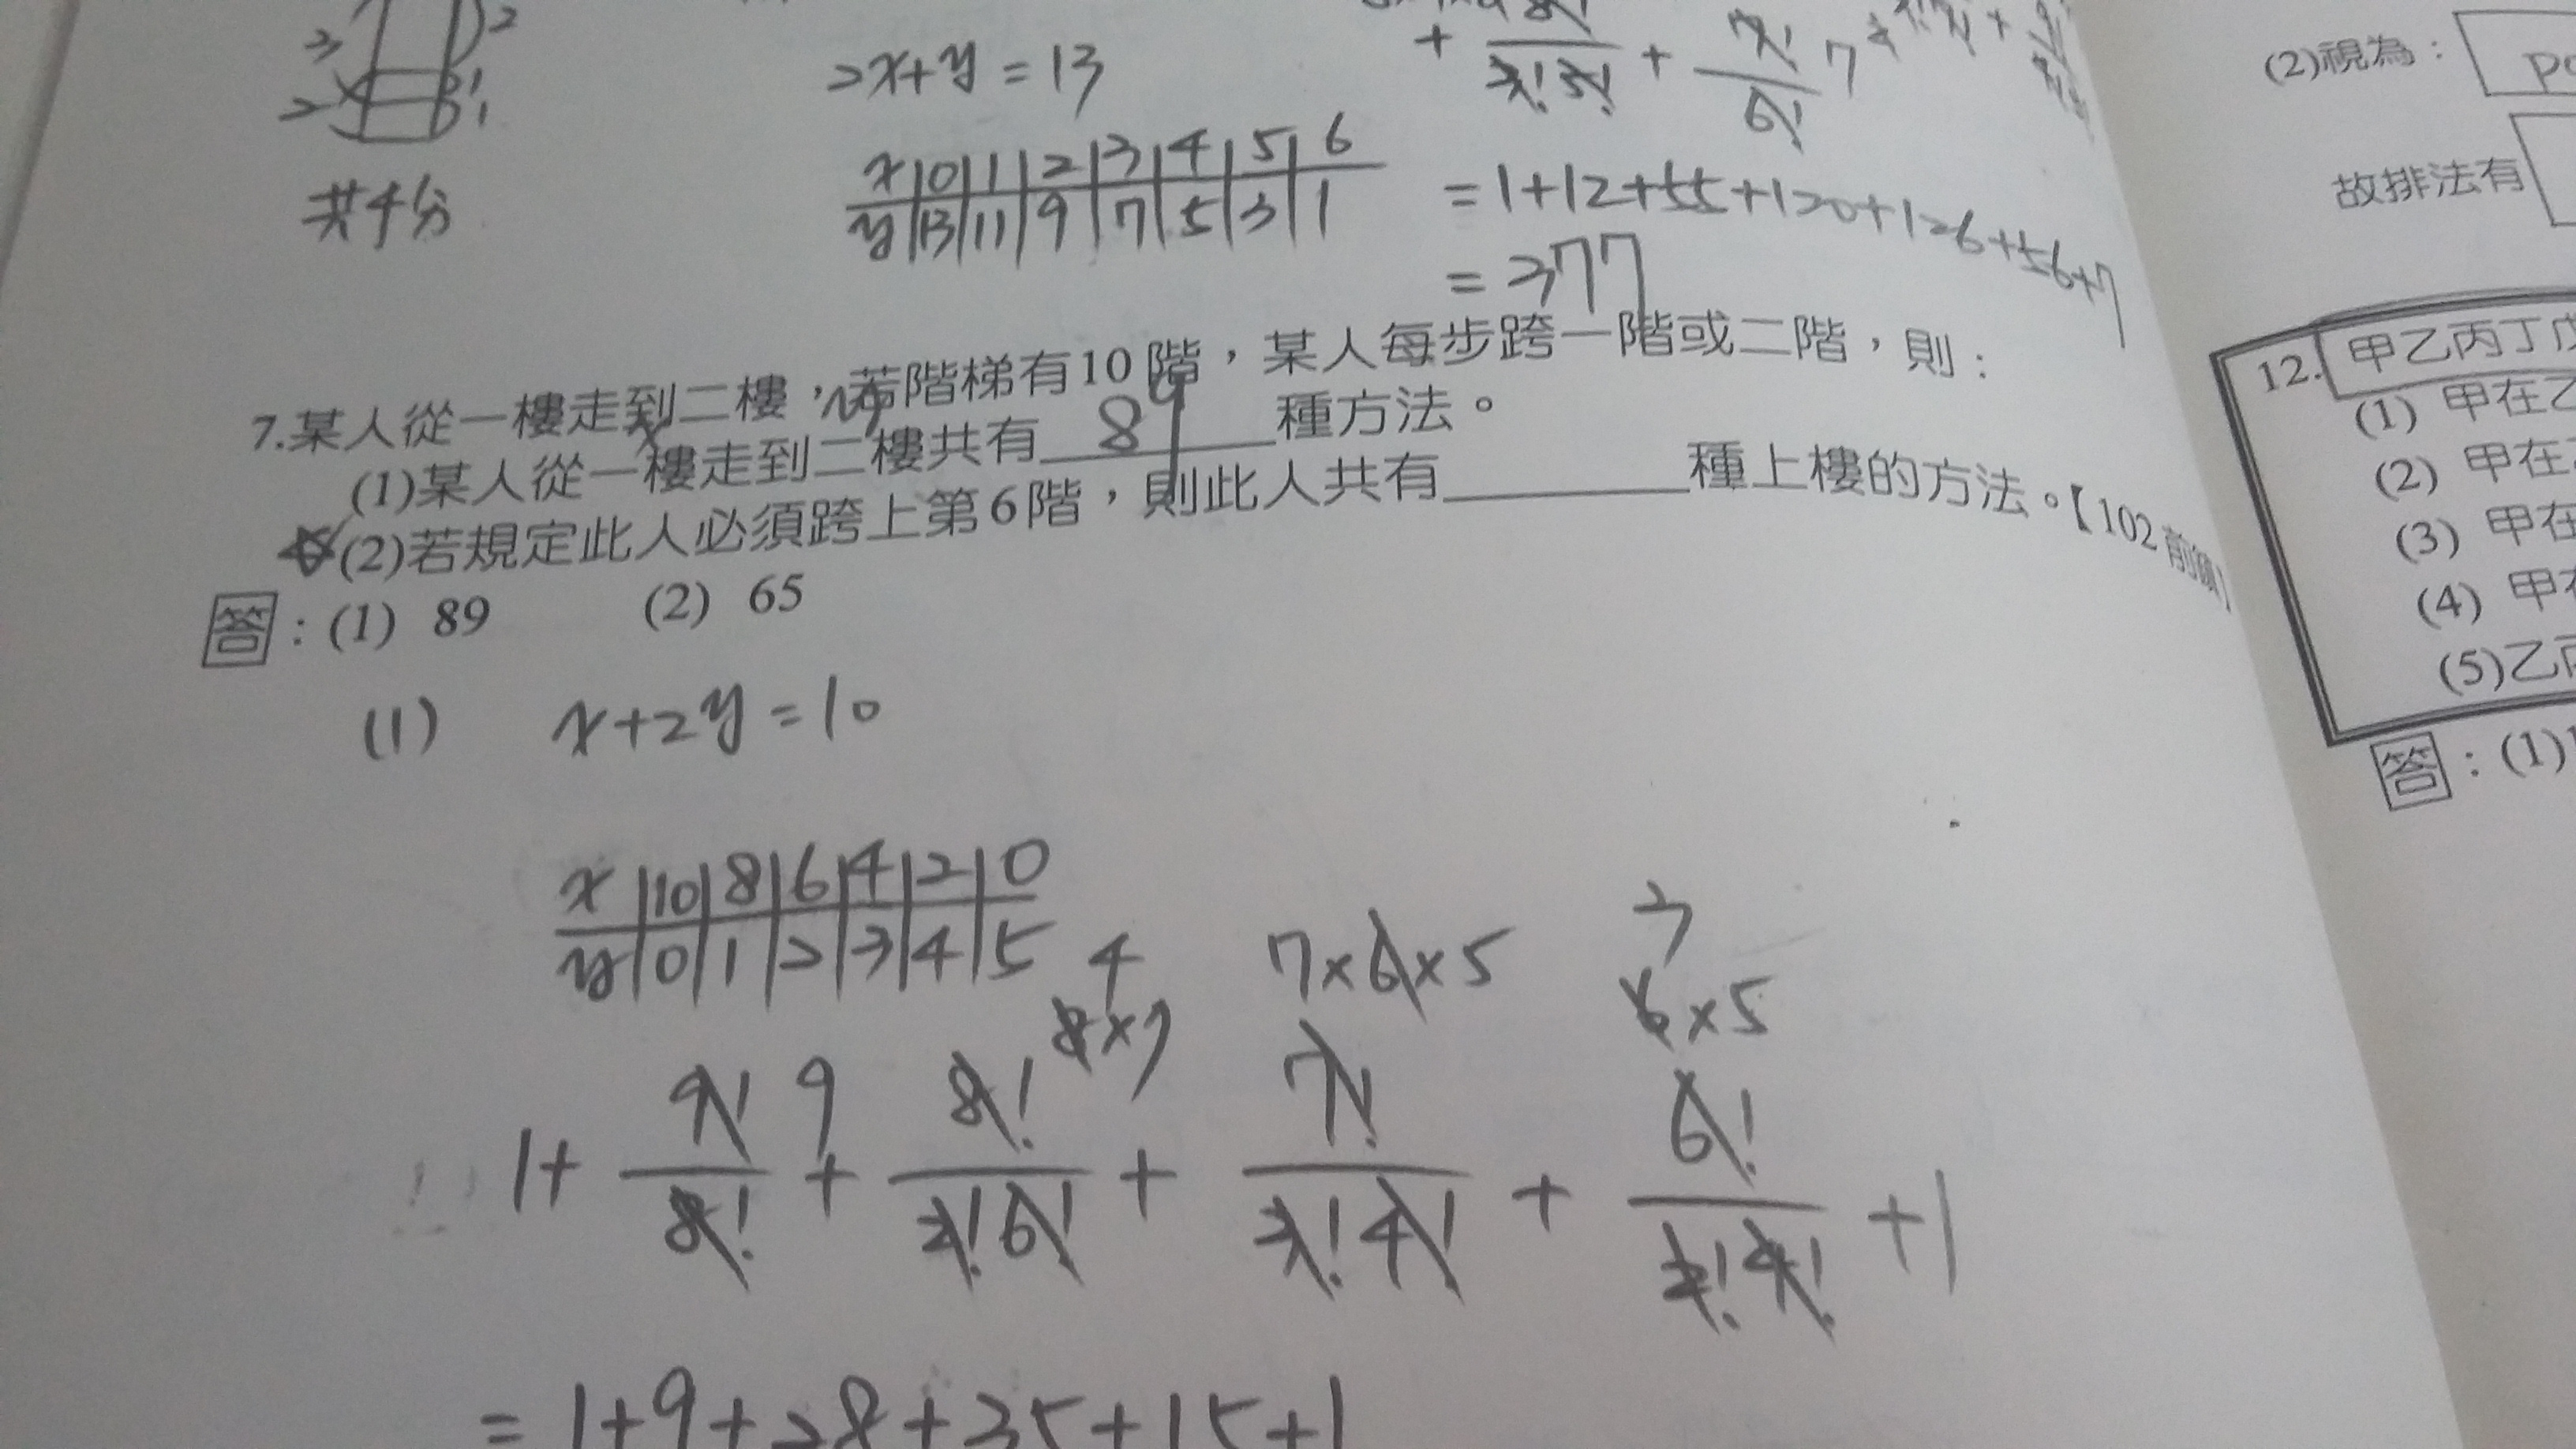 3 2
2 1 1
共4分
2x+y=13
x 0 1 2 3 4 5 6
y 13 11 9 7 5 3 1
+ 8!/3!5! + 7!/6! 7
=1+12+55+120+126+56+7
=377
7.某人從一樓走到二樓,若階梯有10階,某人每步跨一階或二階,則:
(1)某人從一樓走到二樓共有 89 種方法。
(2)若規定此人必須跨上第6階,則此人共有 種上樓的方法。【102
答:(1) 89 (2) 65
(1) x+2y=10
x 10 8 6 4 2 0
y 0 1 2 3 4 5
4 7×6×5 3
8×7 6×5
1+ 9!/8! 9 + 8!/2!6! + 7!/3!4! + 6!/2!4! +1
=1+9+28+35+15+1
(2)視為:
故排法有
12. 甲乙丙丁戊
(1) 甲在乙
(2) 甲在
(3) 甲在
(4) 甲
(5)乙丙
答:(1)